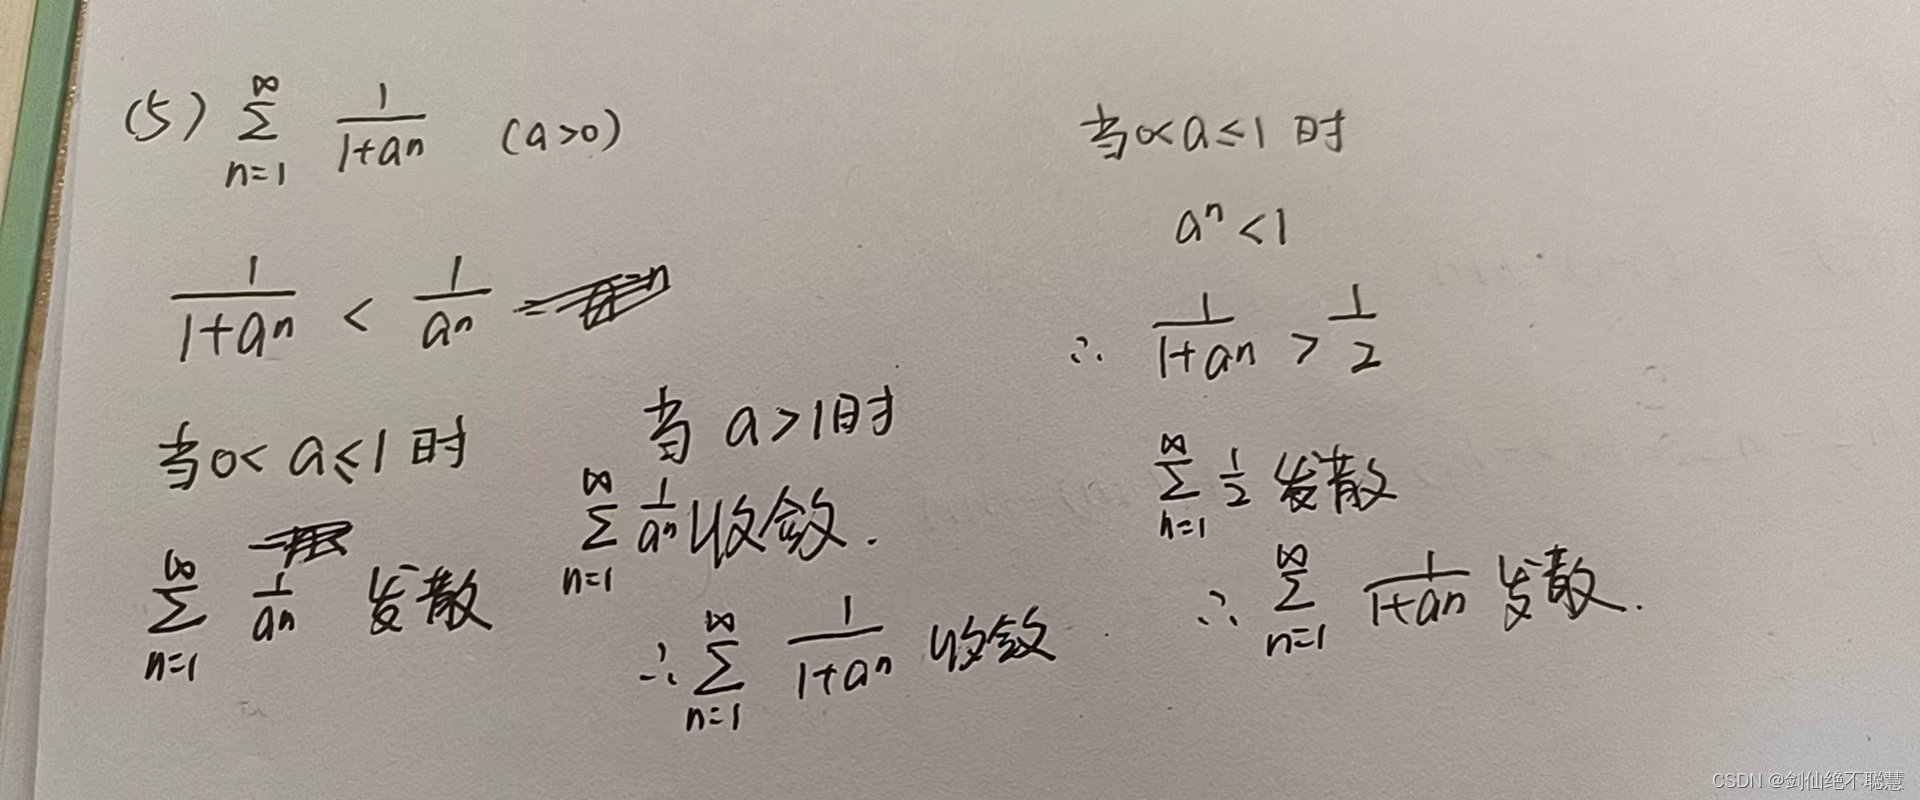 (5) ∑_{n=1}^{∞} 1/(1+aⁿ) (a>0)
1/(1+aⁿ) < 1/aⁿ =
当0<a≤1时
∑_{n=1}^{∞} 1/aⁿ 发散
当a>1时
∑_{n=1}^{∞} 1/aⁿ 收敛.
∴∑_{n=1}^{∞} 1/(1+aⁿ) 收敛
当0<a≤1时
aⁿ<1
∴ 1/(1+aⁿ) > 1/2
∑_{n=1}^{∞} 1/2 发散
∴ ∑_{n=1}^{∞} 1/(1+aⁿ) 发散.
CSDN @剑仙绝不聪慧